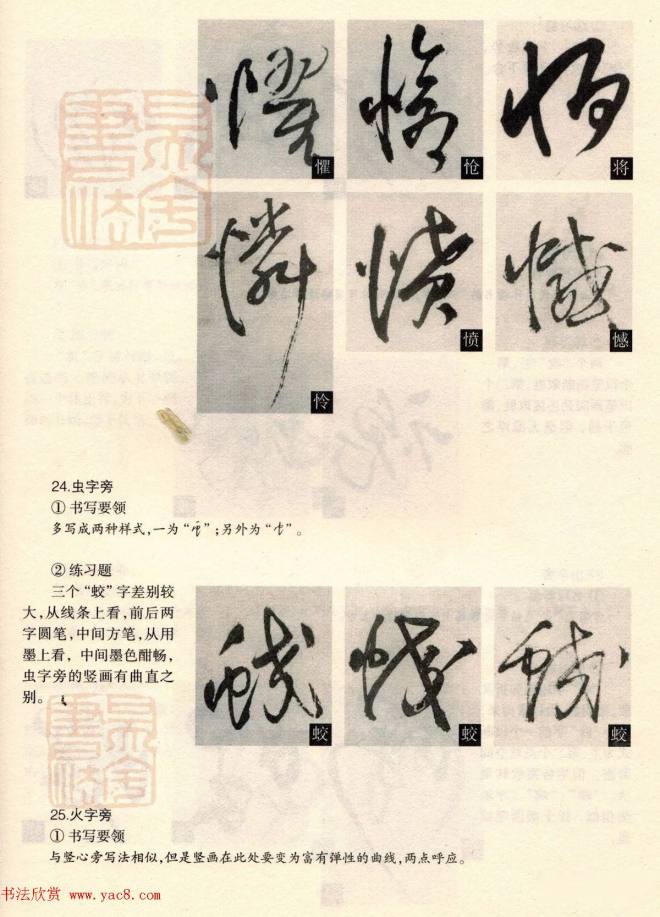 惧
怆
将
怜
愤
憾
24.虫字旁
①书写要领
多写成两种样式,一为“”;另外为“”。
②练习题
三个“蛟”字差别较
大,从线条上看,前后两
字圆笔,中间方笔,从用
墨上看,中间墨色酣畅,
虫字旁的竖画有曲直之
别。
蛟
蛟
蛟
25.火字旁
①书写要领
与竖心旁写法相似,但是竖画在此处要变为富有弹性的曲线,两点呼应。
书法欣赏 www.yac8.com